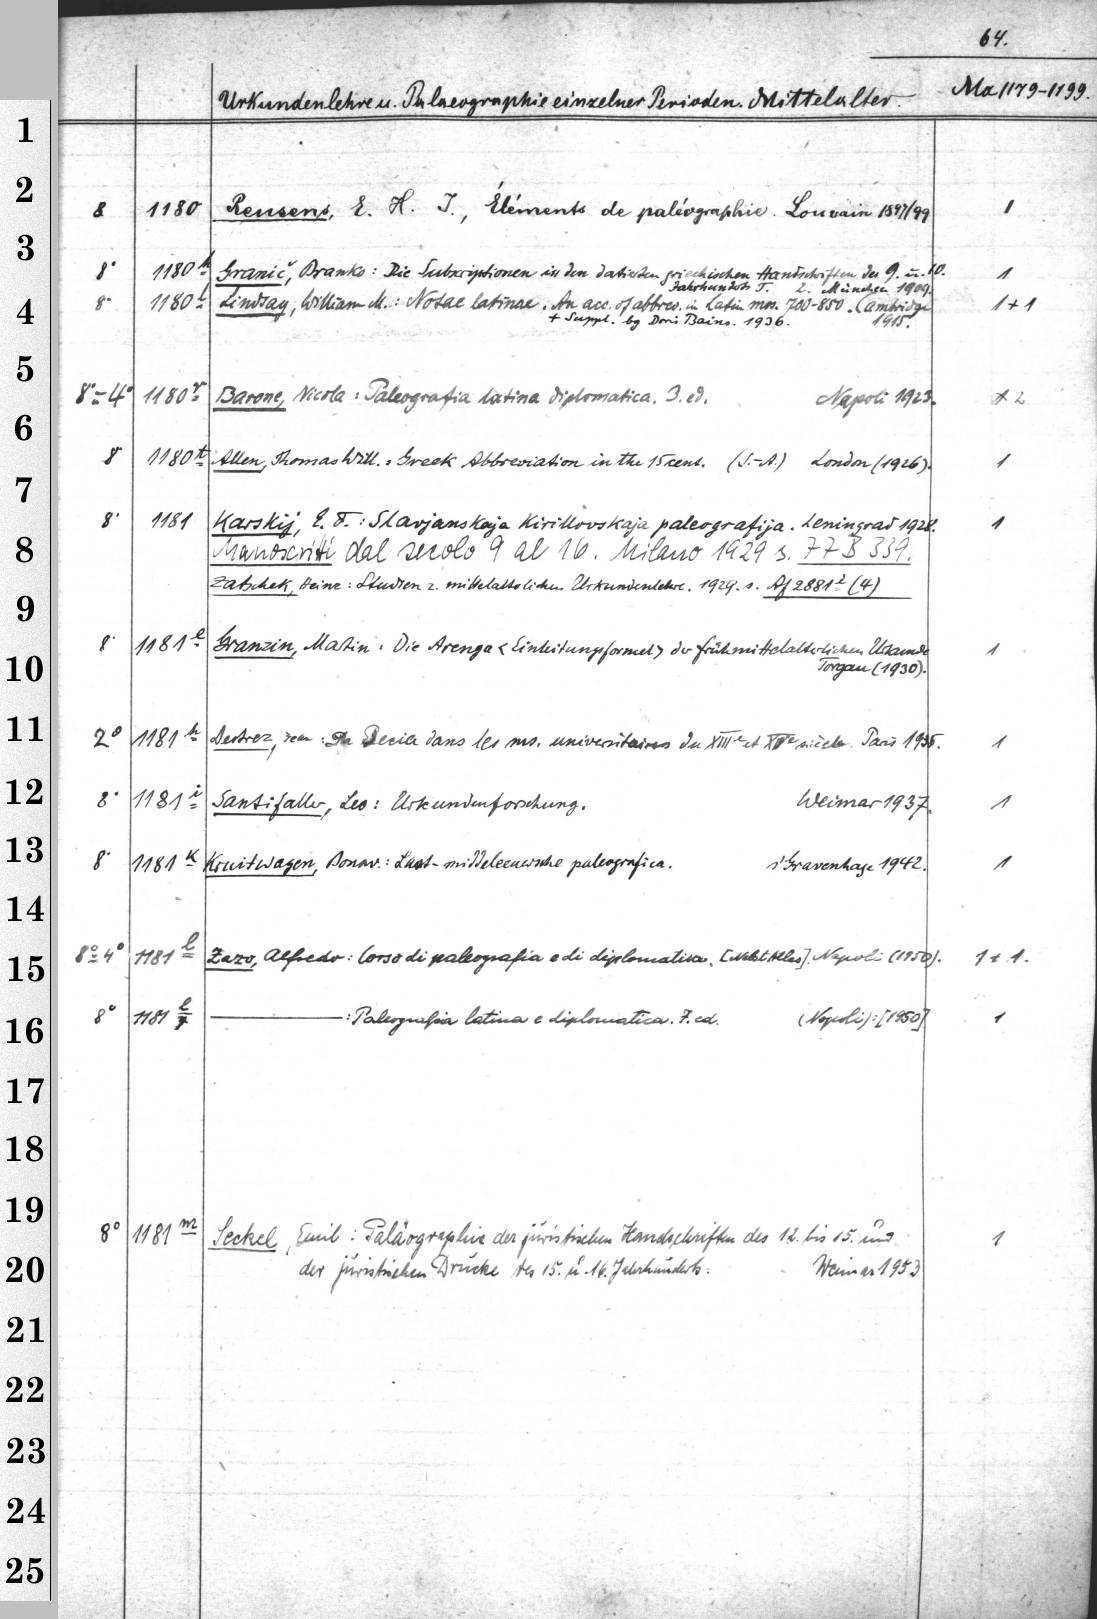 64.
Urkundenlehre u. Palaeographie einzelner Perioden. Mittelalter. Ma 1179-1199.
1
2
8 1180 Reusens, E. H. J., Éléments de paléographie. Louvain 1897/99 1
3
8° 1180 h Granić, Branko: Die Subscriptionen in den datierten griechischen Handschriften des 9. u. 10.
Jahrhunderts T. 2. München 1909. 1
4
8° 1180 l Lindsay, William M.: Notae latinae. An acc. of abbrev. in Latin mss. 700-850. Cambridge
+ Suppl. by Doris Bains. 1936. 1915. 1+1
5
8°-4° 1180 r Barone, Nicola: Paleografia latina diplomatica. 3. ed. Napoli 1923. 2
6
8° 1180 t Allen, Thomas Will.: Greek Abbreviation in the 15 cent. (S.-A.) London (1926). 1
7
8° 1181 Karskij, E. F.: Slavjanskaja Kirillovskaja paleografija. Leningrad 1928. 1
8
Manoscritti dal secolo 9 al 16. Milano 1929 s. 77 B 339.
Zatschek, Heinr: Studien z. mittelalterlichen Urkundenlehre. 1929. s. Af 2881 (4)
9
8° 1181 e Granzin, Martin: Die Arenga <Einleitungsformel> der frühmittelalterlichen Urkunde
10
Torgau (1930). 1
11
2° 1181 h Destrez, Jean: La Pecia dans les ms. universitaires du XIIIe et XIVe siècle. Paris 1935. 1
12
8° 1181 i Santifaller, Leo: Urkundenforschung. Weimar 1937. 1
13
8° 1181 k Kruitwagen, Bonav.: Laat-middeleeuwsche paleografica. s'Gravenhage 1942. 1
14
8° 4° 1181 l Zazo, Alfredo: Corso di paleografia e di diplomatica. Napoli (1950). 1+1.
15
8° 1181 l : Paleografia latina e diplomatica. 7. ed. (Napoli): [1950] 1
16
17
18
19
8° 1181 m Seckel, Emil: Paläographie der juristischen Handschriften des 12. bis 15. und 1
20
der juristischen Drucke des 15. u. 16. Jahrhunderts. Weimar 1953
21
22
23
24
25